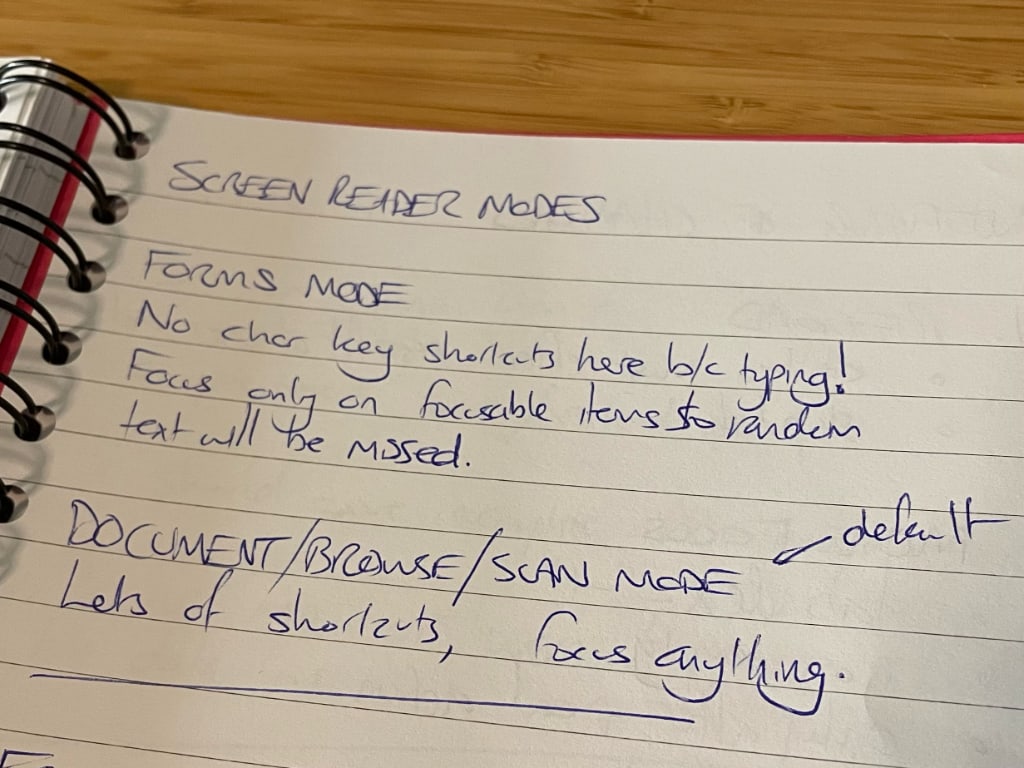 SCREEN READER MODES
FORMS MODE
No char key shortcuts here b/c typing!
Focus only on focusable items so random
text will be missed.
default
DOCUMENT/BROWSE/SCAN MODE
Lots of shortcuts, focus anything.